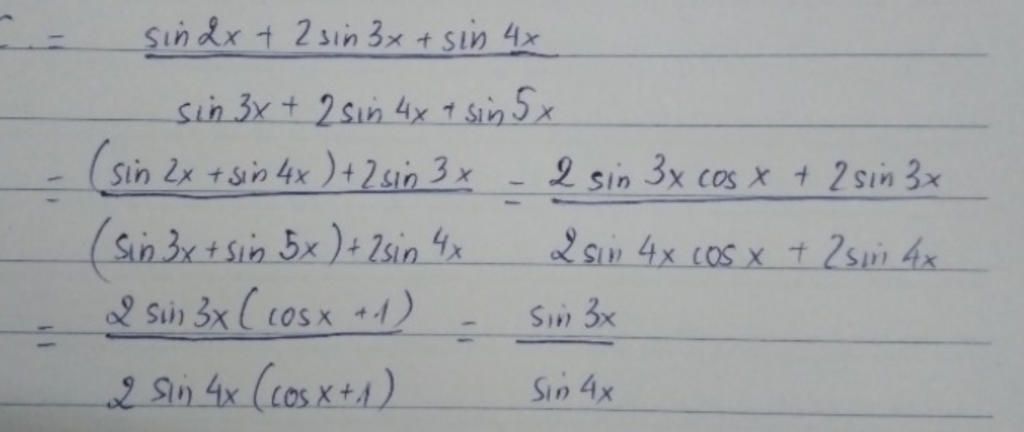 = sin 2x + 2 sin 3x + sin 4x
sin 3x + 2 sin 4x + sin 5x
= (sin 2x + sin 4x) + 2 sin 3x = 2 sin 3x cos x + 2 sin 3x
(sin 3x + sin 5x) + 2 sin 4x 2 sin 4x cos x + 2 sin 4x
= 2 sin 3x (cos x + 1) = sin 3x
2 sin 4x (cos x + 1) sin 4x